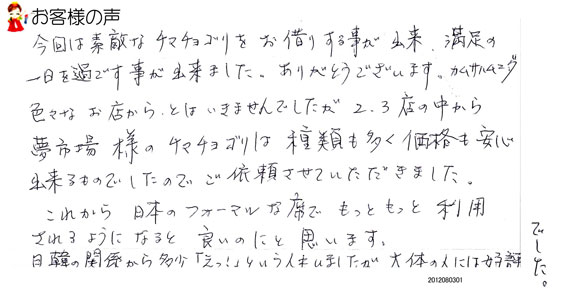 お客様の声
今回は素敵なチマチョゴリをお借りする事が出来、満足の
一日を過ごす事が出来ました。ありがとうございます。カムサハムニダ
色々なお店から、とはいきませんでしたが 2、3店の中から
夢市場様のチマチョゴリは種類も多く価格も安心
出来るものでしたのでご依頼させていただきました。
これから日本のフォーマルな席でもっともっと利用
されるようになると良いのにと思います。
日韓の関係から多少「えっ!」という人もいましたが大体の人には好評
でした。
2012080301